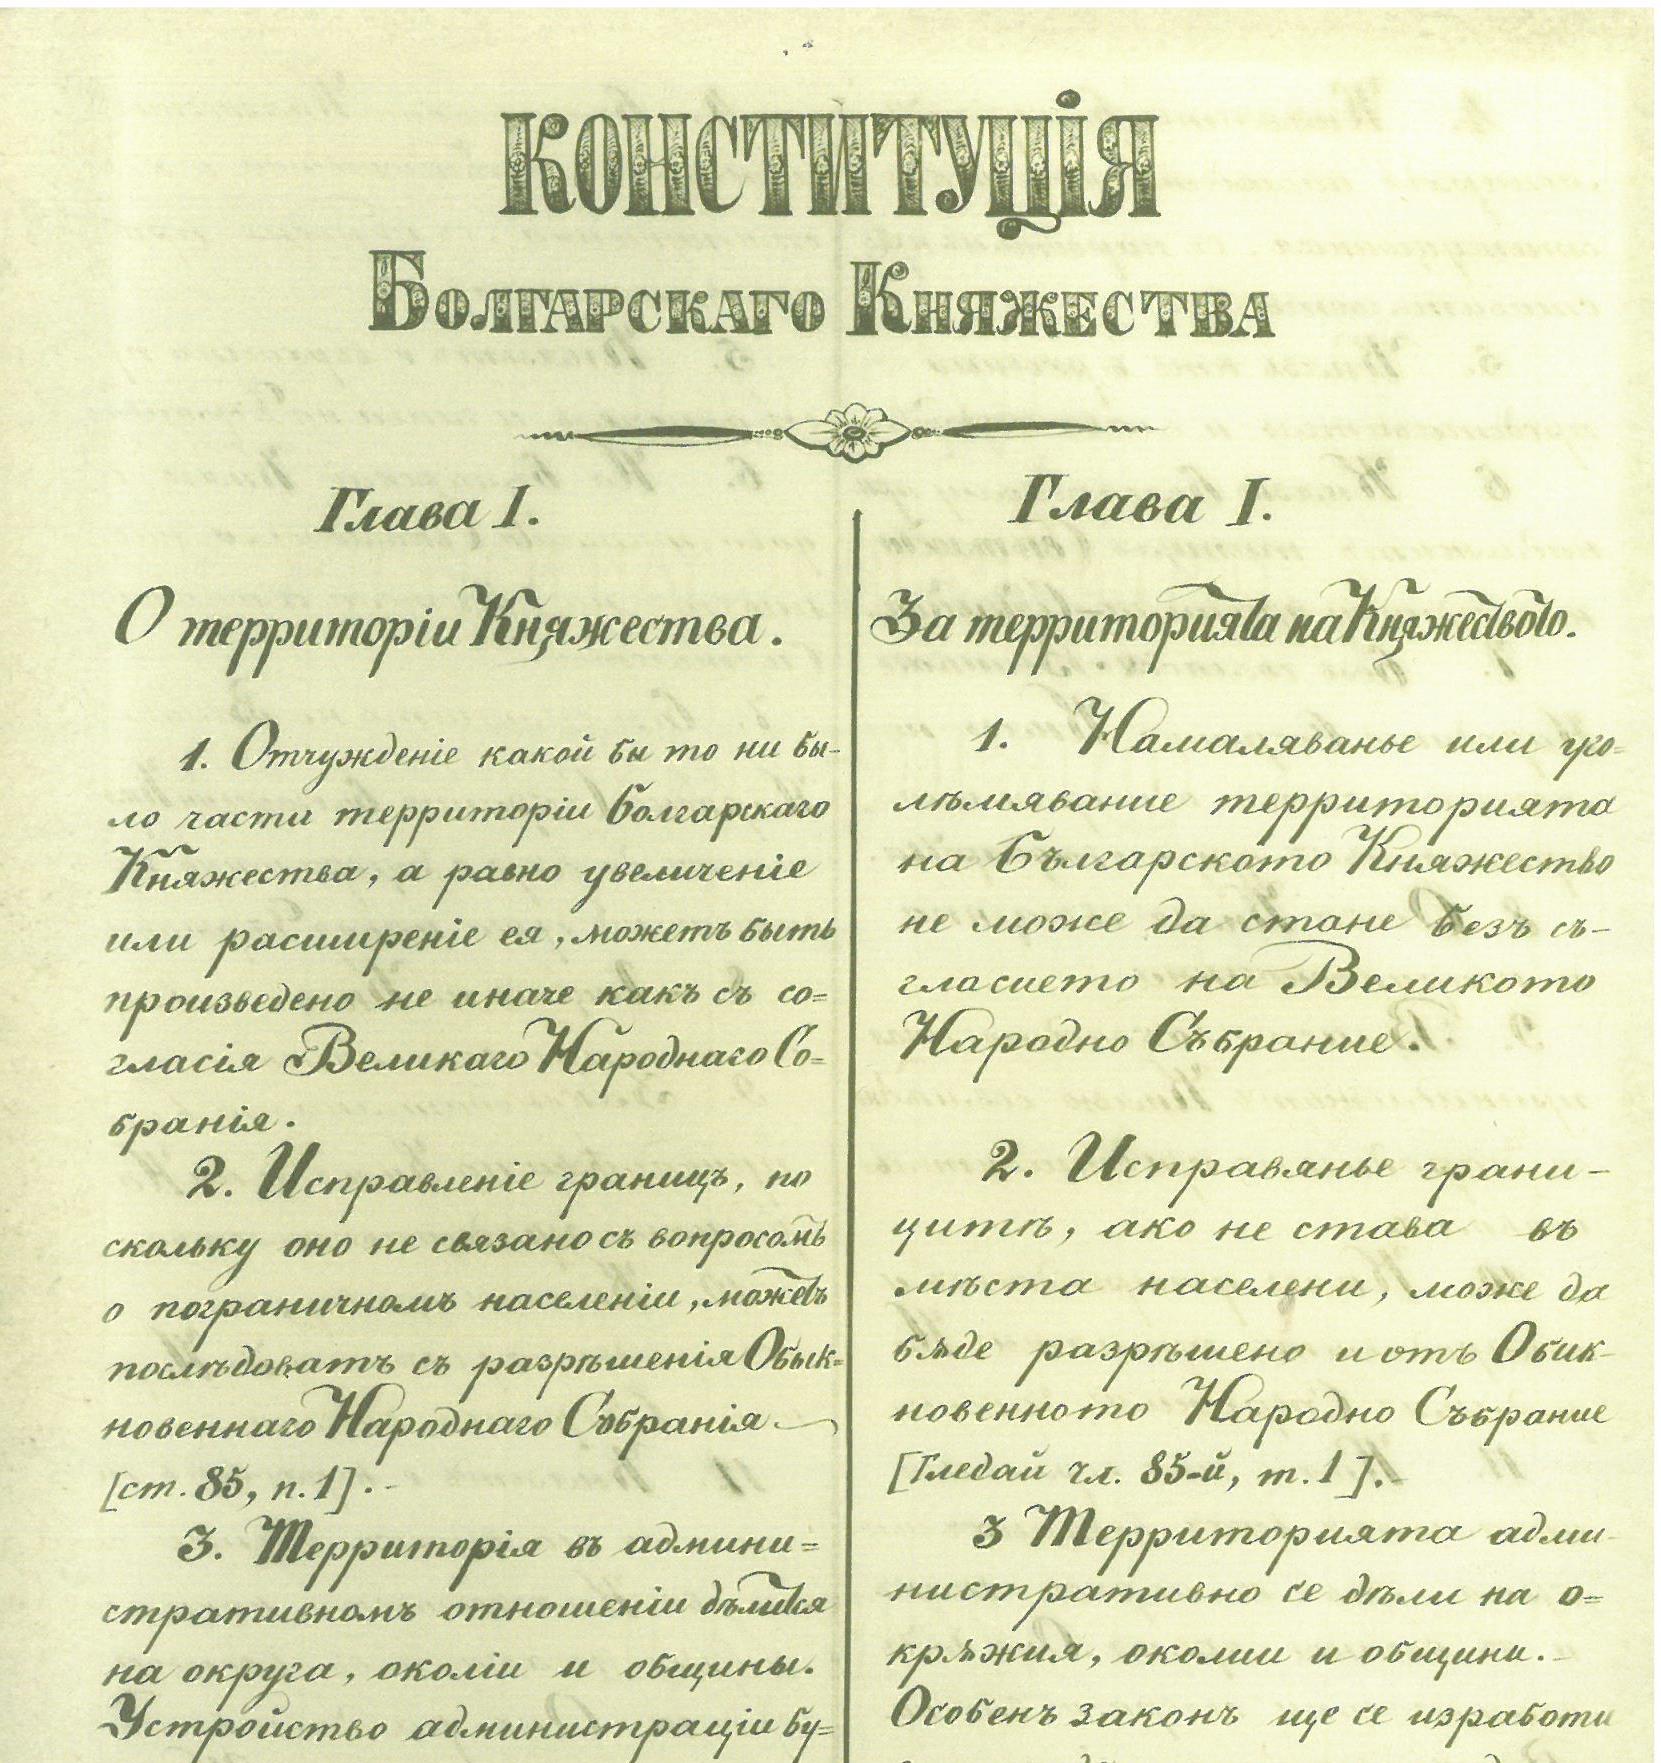 КОНСТИТУЦІЯ
БОЛГАРСКАГО КНЯЖЕСТВА
Глава I.
О территоріи Княжества.
1. Отчужденіе какой бы то ни бы-
ло части территоріи Болгарскаго
Княжества, а равно увеличеніе
или расширеніе ея, можетъ быть
произведено не иначе какъ съ со=
гласія Великаго Народнаго Со=
бранія.
2. Исправленіе границъ, по
скольку оно не связано съ вопросомъ
о пограничномъ населеніи, можетъ
послѣдовать съ разрѣшенія Обык=
новеннаго Народнаго Собранія
[ст. 85, п. 1].-
3. Территорія въ админи=
стративномъ отношеніи дѣлится
на округа, околіи и общины.
Устройство администраціи бу=
Глава I.
За территорията на Княжеството.
1. Намаляванье или уго=
лѣмявание територията
на Българското Княжество
не може да стане безъ съ-
гласието на Великото
Народно Събрание.
2. Исправянье грани-
цитѣ, ако не става въ
мѣста населени, може да
бѫде разрѣшено и отъ Обик-
новенното Народно Събрание
[Гледай чл. 85-й, т. 1].-
3 Территорията адми-
нистративно се дѣли на о=
крѫжия, околии и общини.-
Особенъ законъ ще се изработи